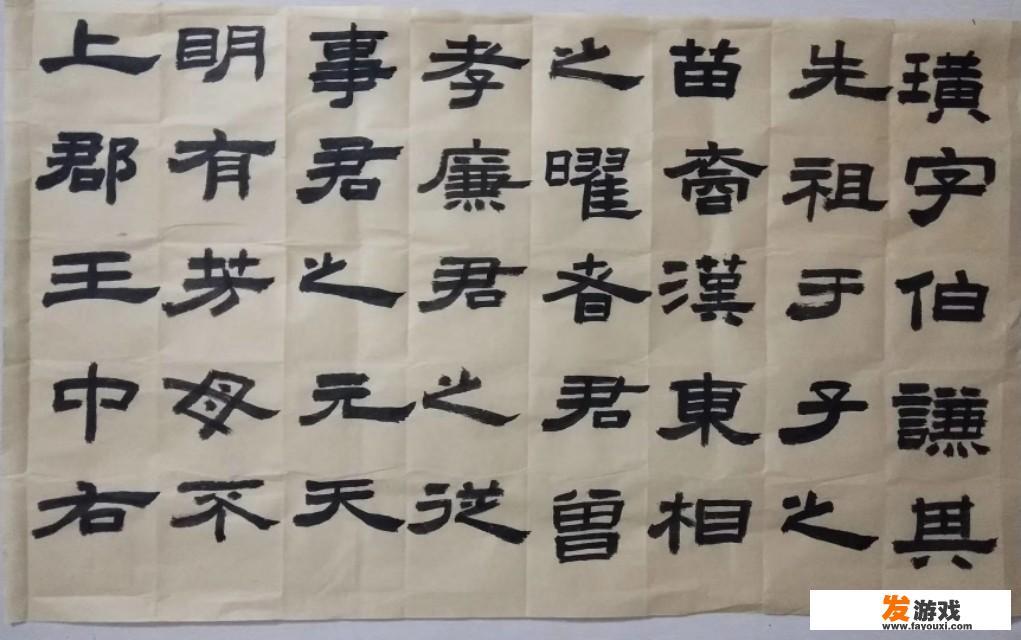 璜字伯謙其
先祖于子之
苗裔漢東相
之曜者君曾
孝廉君之從
事君之元天
明有芳母不
上郡王中右
发游戏
www.fayouxi.com